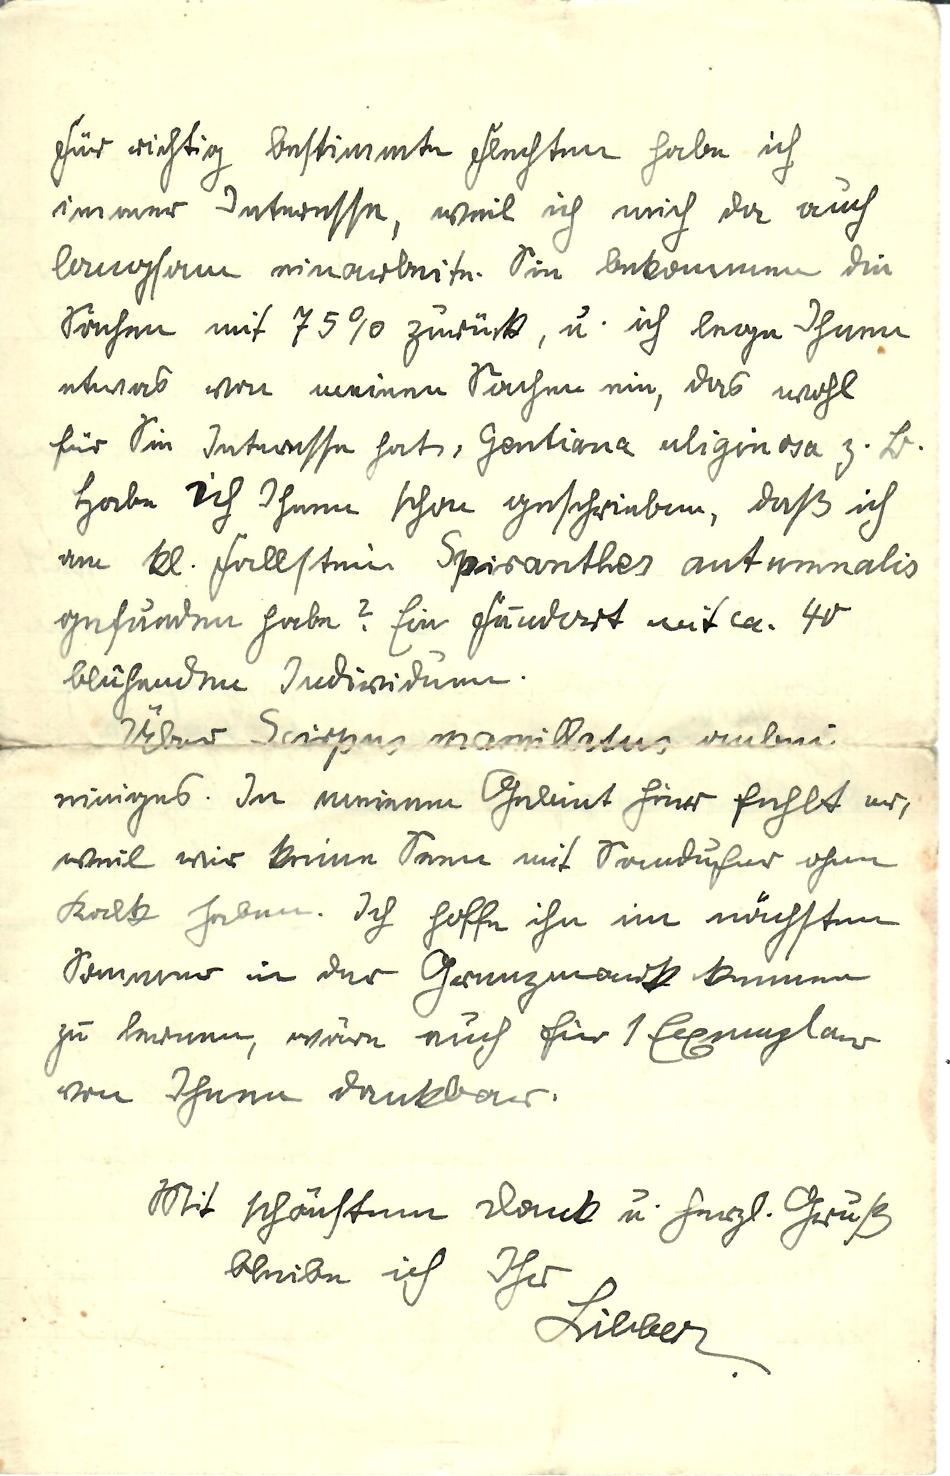 für richtig bestimmte Flechten habe ich
immer Interesse, weil ich mich da auch
langsam einarbeite. Sie bekommen die
Sachen mit 75% zurück, u. ich lege Ihnen
etwas von meinen Sachen ein, das wohl
für Sie Interesse hat, Gentiana uliginosa z. B.
Habe ich Ihnen schon geschrieben, daß ich
am kl. Fallstein Spiranthes autumnalis
gefunden habe? Ein Fundort mit ca. 40
blühenden Individuen.
Über Scirpus mamillatus anbei
einiges. In meinem Gebiet hier fehlt er,
weil wir keine Seen mit Sandufer ohne
Kalk haben. Ich hoffe ihn im nächsten
Sommer in der Grenzmark kennen
zu lernen, wäre auch für 1 Exemplar
von Ihnen dankbar.
Mit schönstem Dank u. herzl. Gruß
bleibe ich Ihr
Libber